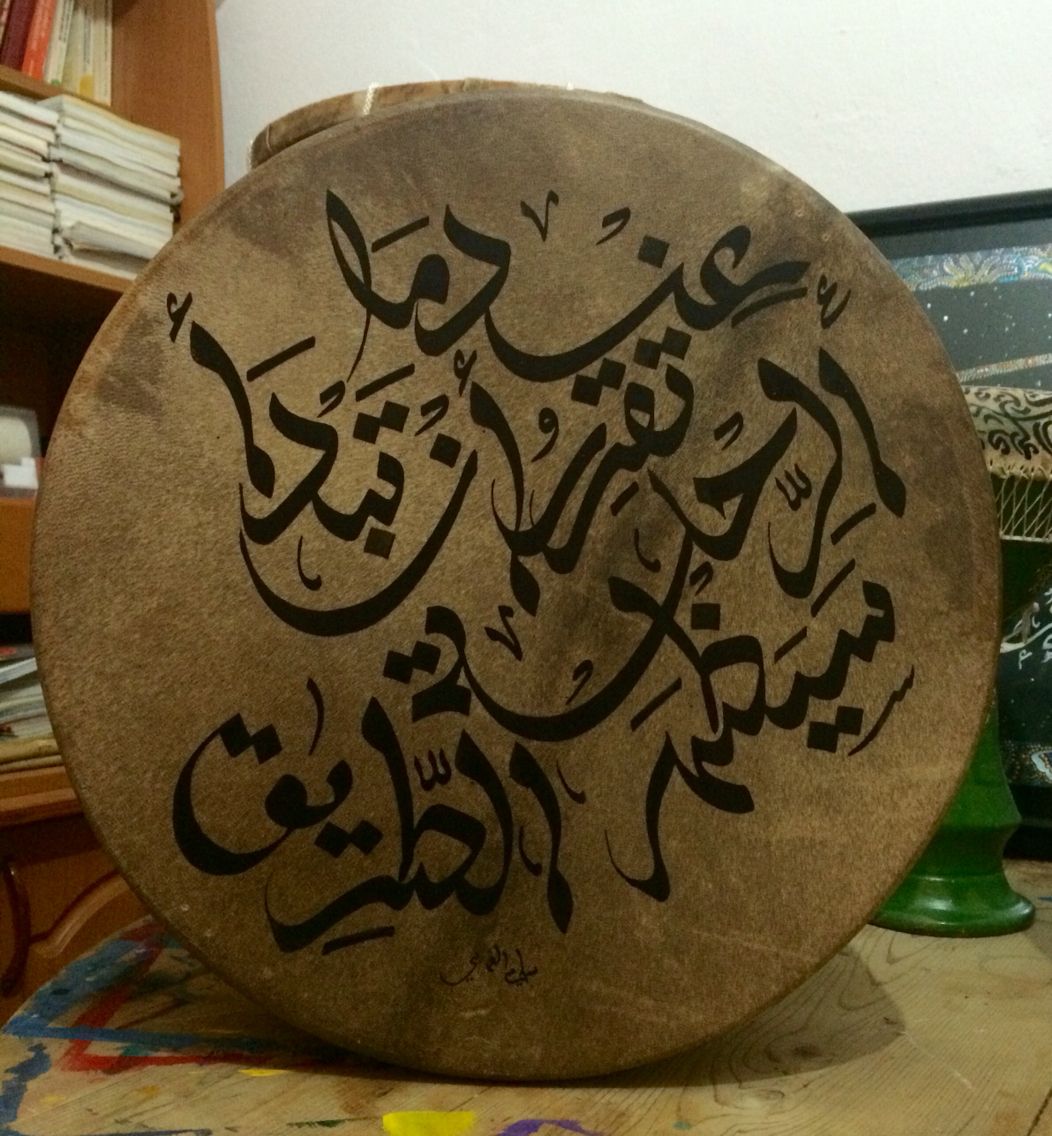 عندما
تقرر أن تبدأ
الرحلة
سيظهر
الطريق